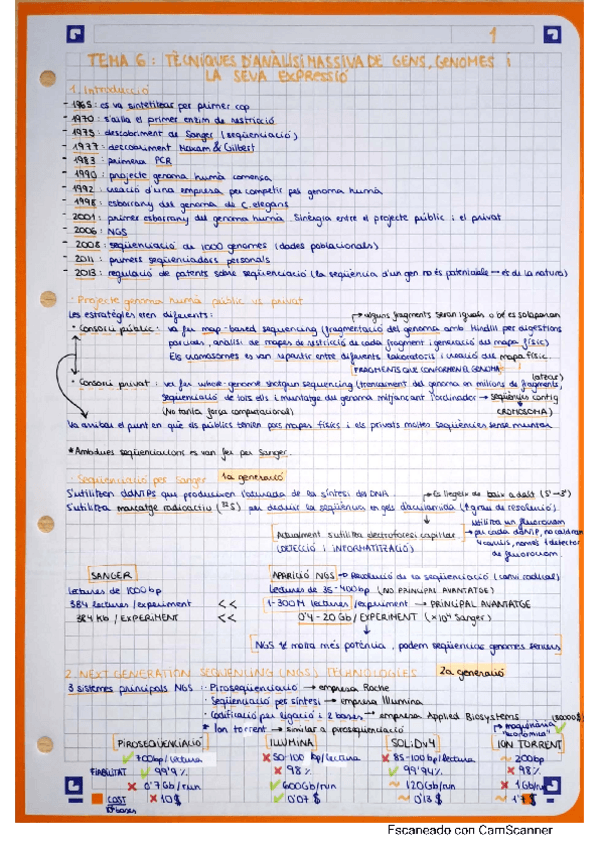 1
TEMA 6: TÈCNIQUES D'ANÀLISI MASSIVA DE GENS, GENOMES I
LA SEVA EXPRESSIÓ
1. Introducció
- 1965: es va sintetitzar per primer cop
- 1970: s'aïlla el primer enzim de restricció
- 1975: descobriment de Sanger (seqüenciació)
- 1977: descobriment Maxam & Gilbert
- 1983: primera PCR
- 1990: projecte genoma humà comença
- 1992: creació d'una empresa per competir pel genoma humà
- 1998: esborrany del genoma de C. elegans
- 2001: primer esborrany del genoma humà. Sinèrgia entre el projecte públic i el privat
- 2006: NGS
- 2008: seqüenciació de 1000 genomes (dades poblacionals)
- 2011: primers seqüenciadors personals
- 2013: regulació de patents sobre seqüenciació (la seqüència d'un gen no és patentable → és de la natura)
Projecte genoma humà públic vs privat
Les estratègies eren diferents:
→ alguns fragments seran iguals o bé es solaparan
• Consorci públic: va fer map-based sequencing (fragmentació del genoma amb HindIII per digestions
parcials, anàlisi de mapes de restricció de cada fragment i generació del mapa físic)
Els cromosomes es van repartir entre diferents laboratoris i creació del mapa físic.
FRAGMENTS QUE CONFORMEN EL GENOMA
• Consorci privat: va fer whole-genome shotgun sequencing (trencament del genoma en milions de fragments,
seqüenciació de tots ells i muntatge del genoma mitjançant l'ordinador → seqüències contig
(No tanta força computacional)
(CROMOSOMA)
Va arribar el punt en què els públics tenien pocs mapes físics i els privats moltes seqüències sense muntar
* Ambdues seqüenciacions es van fer per Sanger.
Seqüenciació per Sanger 1a generació
S'utilitzen ddNTPs que produeixen l'aturada de la síntesi del DNA
→ Es llegeix de baix a dalt (5'→3')
S'utilitza marcatge radioactiu (³⁵S) per deduir la seqüència en gels d'acrilamida (↑ grau de resolució)
Actualment s'utilitza electroforesi capil·lar
(DETECCIÓ I INFORMATITZACIÓ)
utilitza un fluorocrom
per cada ddNTP, no caldran
4 carrils, només 1 detector
de fluorocrom.
SANGER APARICIÓ NGS → Revolució de la seqüenciació (canvi radical)
Lectures de 1000 bp Lectures de 35-400bp (NO PRINCIPAL AVANTATGE)
384 lectures/experiment << 1-300M lectures/experiment → PRINCIPAL AVANTATGE
384 Kb/EXPERIMENT << 0'4-20 Gb/EXPERIMENT (×10⁴ Sanger)
NGS té molta més potència, podem seqüenciar genomes sencers
2. NEXT GENERATION SEQUENCING (NGS) TECHNOLOGIES 2a generació
3 sistemes principals NGS: · Piroseqüenciació → empresa Roche
· Seqüenciació per síntesi → empresa Illumina
· Codificació per lligació i 2 bases → empresa Applied Biosystems
* Ion torrent → similar a piroseqüenciació
maquinària
"econòmica"
PIROSEQÜENCIACIÓ ILLUMINA SOLiDv4 ION TORRENT
✓ 700bp/lectura ✗ 50-100 bp/lectura ✗ 85-100bp/lectura ~ 200bp
FIABILITAT ✓ 99'9% ✗ 98% ✓ 99'94% ✗ 98%
✗ 0'7Gb/run ✓ 600Gb/run ~ 120Gb/run ✗ 1Gb/run
COST ✗ 10$ ✓ 0'07$ ~ 0'13$ ~ 1'$
bases
Escaneado con CamScanner